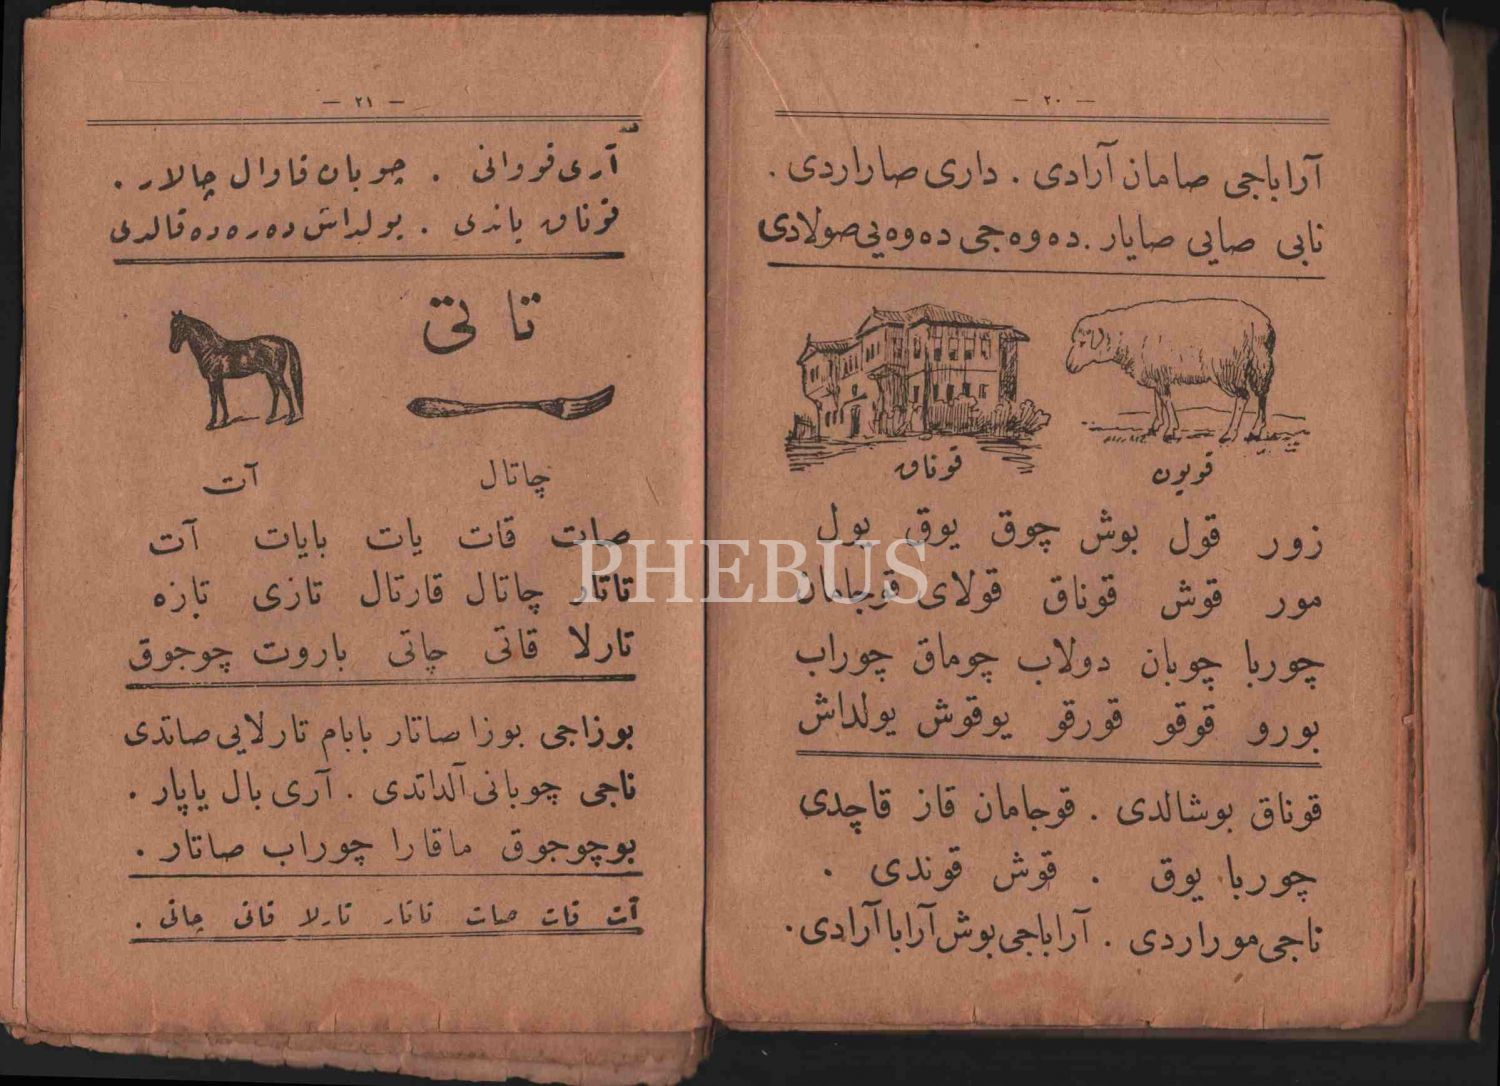 — ٢٠ —
آراباجی صامان آرادی . داری صاراردی .
نابی صایی صایار . ده‌وه‌جی ده‌وه‌یی صولادی
قویون
قوناق
زور قول بوش چوق یوق یول
مور قوش قوناق قولای قوجامان
چوربا چوبان دولاب چوماق چوراب
بورو قوقو قورقو یوقوش یولداش
قوناق بوشالدی . قوجامان قاز قاچدی
چوربا یوق . قوش قوندی .
ناجی موراردی . آراباجی بوش آرابا آرادی .
— ٢١ —
آری قووانی . چوبان قاوال چالار .
قوناق یاندی . یولداش ده‌ره‌ده قالدی
تا تی
چاتال
آت
صات قات یات بایات آت
تاتار چاتال قارتال تازی تازه
تارلا قاتی چاتی باروت چوجوق
بوزاجی بوزا صاتار بابام تارلایی صاتدی
ناجی چوبانی آلداتدی . آری بال یاپار .
بوچوجوق ماقارا چوراب صاتار .
آت قات صات تاتار تارلا قاتی چاتی .
PHEBUS